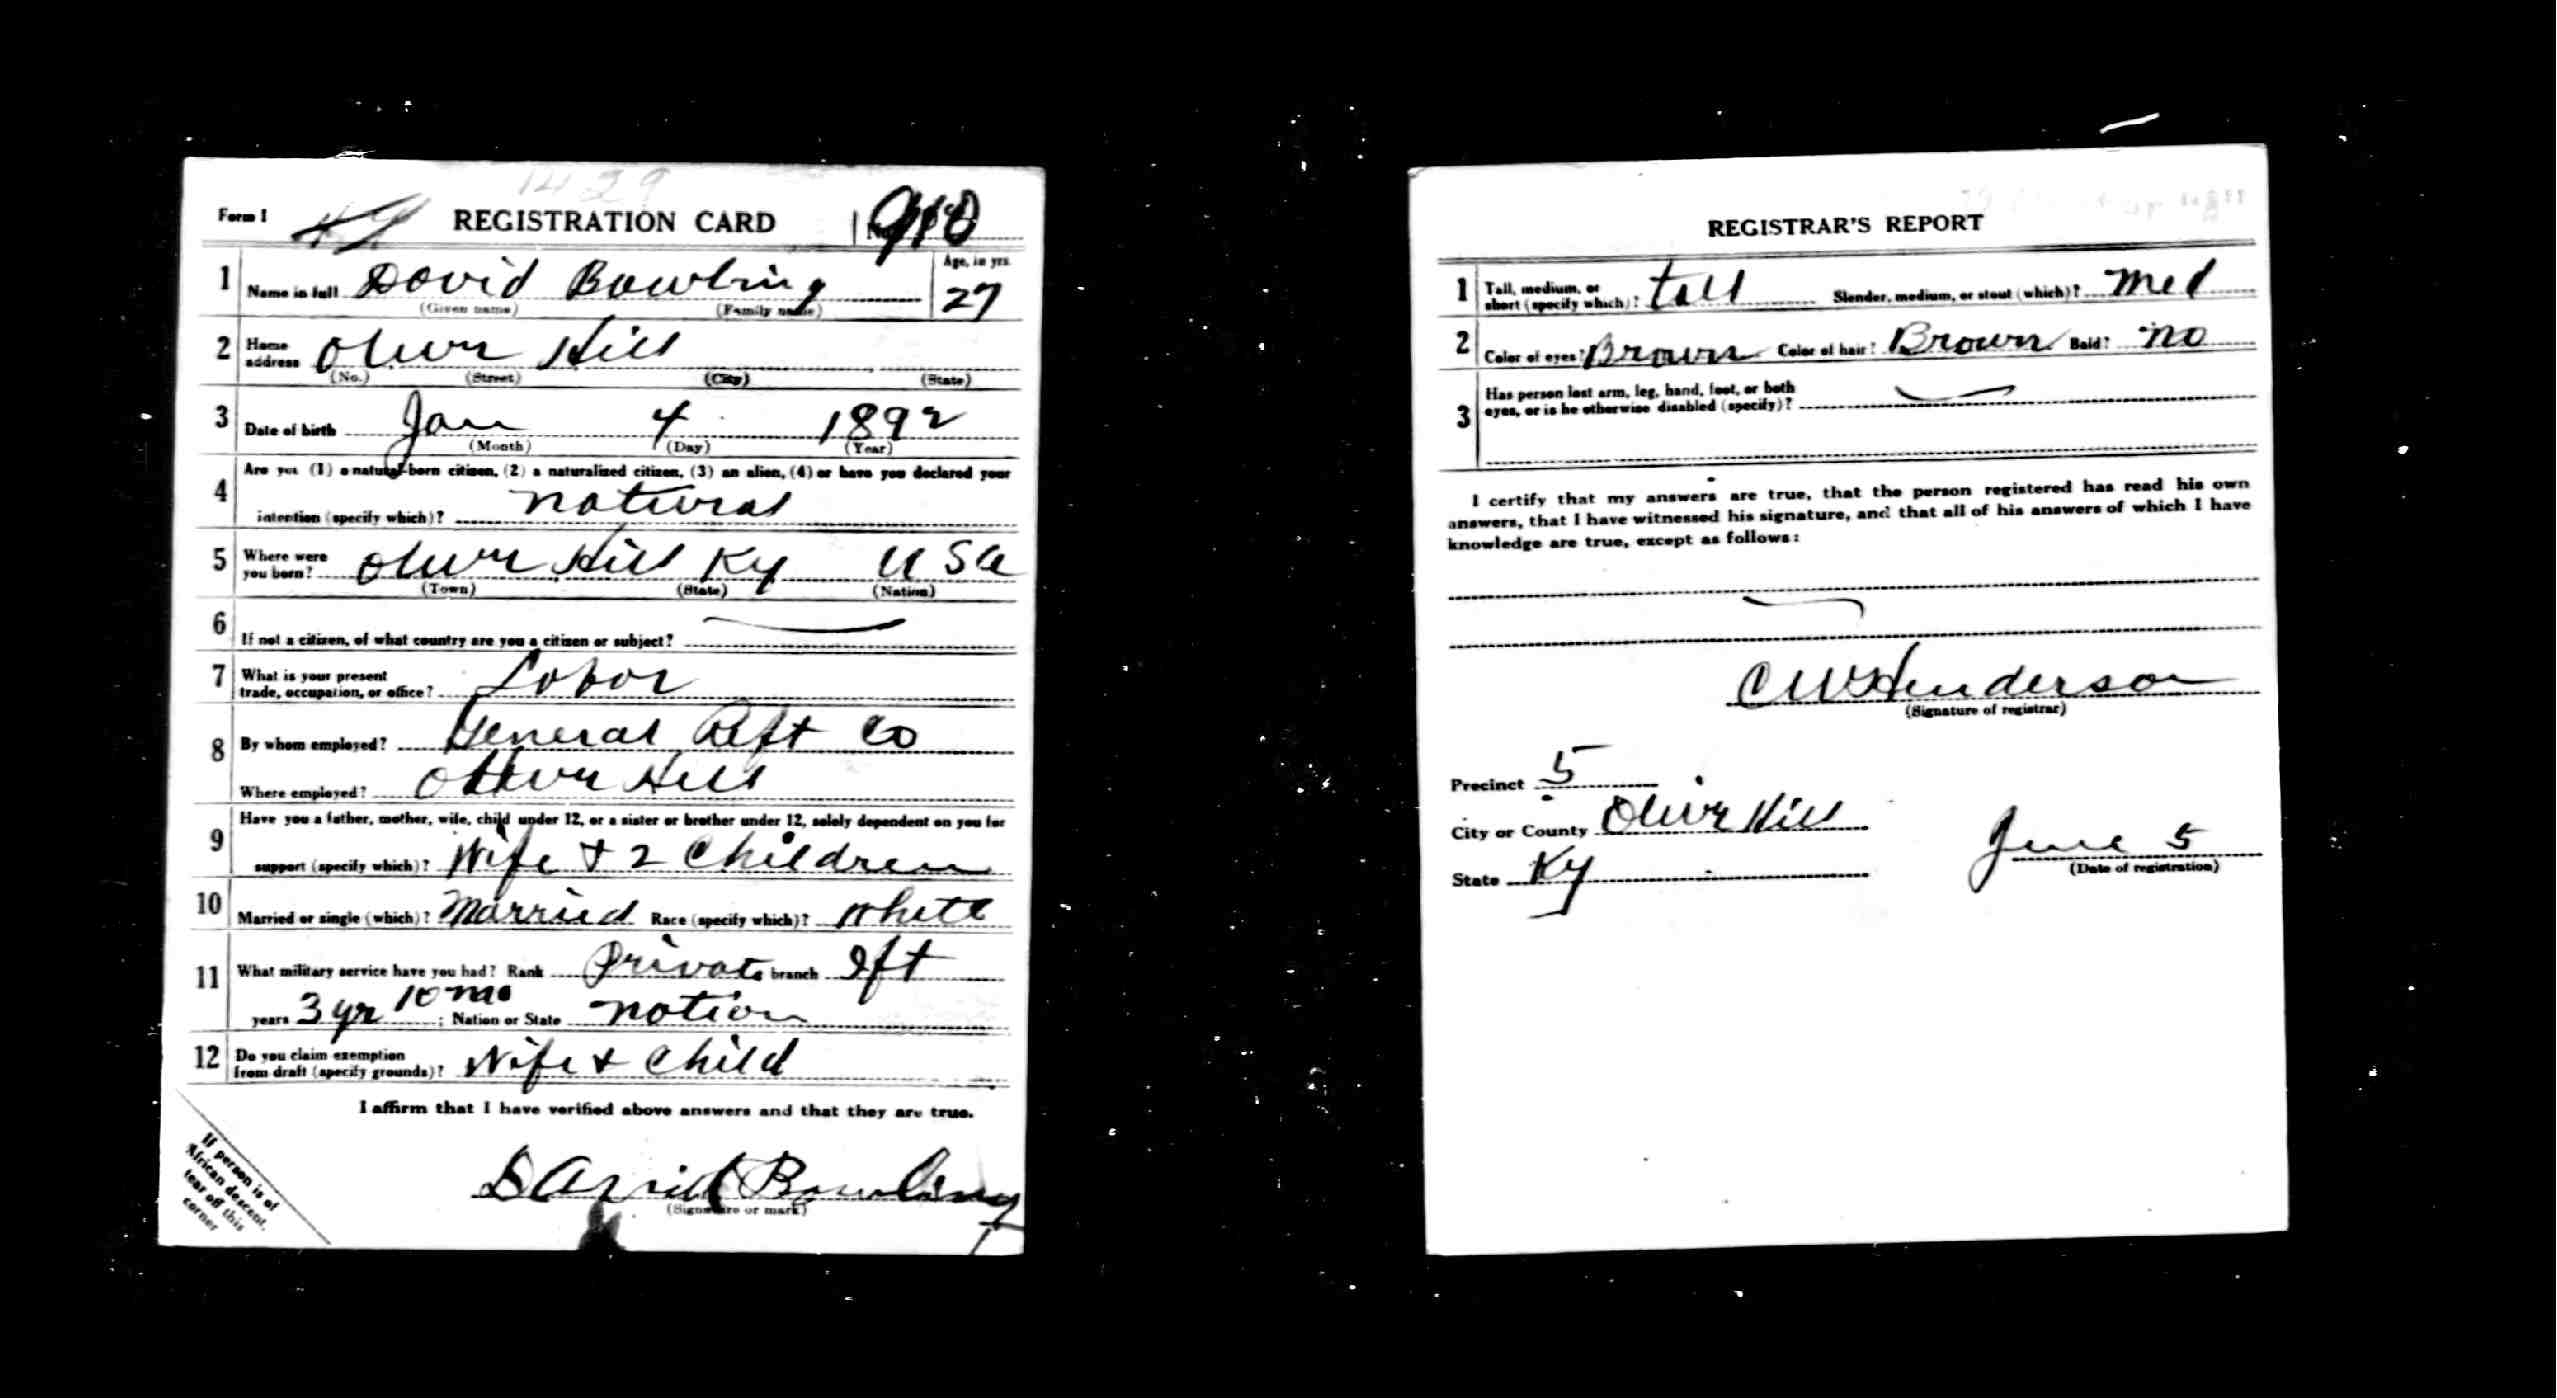 1429
Form 1 REGISTRATION CARD No. 910
1 Name in full David Bowling Age, in yrs. 27
(Given name) (Family name)
2 Home address Olive Hill
(No.) (Street) (City) (State)
3 Date of birth Jan 4 1892
(Month) (Day) (Year)
4 Are you (1) a natural-born citizen, (2) a naturalized citizen, (3) an alien, (4) or have you declared your
intention (specify which)? natural
5 Where were you born? Olive Hill Ky U Sa
(Town) (State) (Nation)
6 If not a citizen, of what country are you a citizen or subject?
7 What is your present
trade, occupation, or office? Labor
8 By whom employed? General Reft Co
Where employed? Olive Hill
9 Have you a father, mother, wife, child under 12, or a sister or brother under 12, solely dependent on you for
support (specify which)? Wife + 2 Children
10 Married or single (which)? Married Race (specify which)? White
11 What military service have you had? Rank Private branch Ift
years 3 yr 10 mo ; Nation or State Nation
12 Do you claim exemption
from draft (specify grounds)? Wife + Child
I affirm that I have verified above answers and that they are true.
David Bowling
(Signature or mark)
If person is of
African descent,
tear off this
corner
REGISTRAR'S REPORT
1 Tall, medium, or
short (specify which)? tall Slender, medium, or stout (which)? Med
2 Color of eyes? Brown Color of hair? Brown Bald? No
3 Has person lost arm, leg, hand, foot, or both
eyes, or is he otherwise disabled (specify)?
I certify that my answers are true, that the person registered has read his own
answers, that I have witnessed his signature, and that all of his answers of which I have
knowledge are true, except as follows:
C W Henderson
(Signature of registrar)
Precinct 5
City or County Olive Hill
State Ky
June 5
(Date of registration)